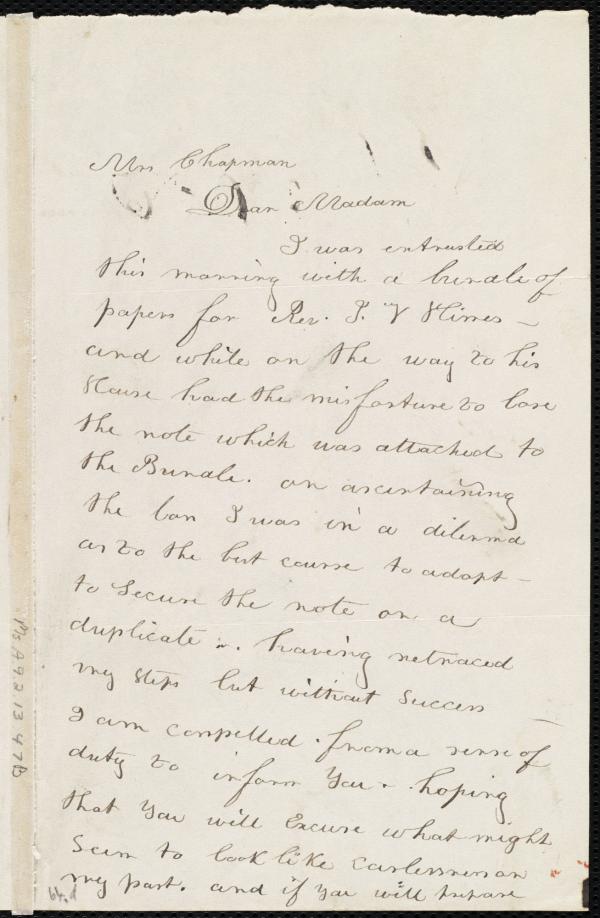 Mrs Chapman
Dear Madam
I was entrusted
this morning with a bundle of
papers for Rev. J. V Himes -
and while on the way to his
House had the misfortune to lose
the note which was attached to
the Bundle. on ascertaining
the loss I was in a dilemma
as to the best course to adopt -
to Secure the note or a
duplicate - . having retraced
my steps but without success -
I am compelled . from a sense of
duty to inform You - . hoping
that You will Excuse what might
Seem to look like carlessness on
my part. and if you will prepare
Ms A.9.2.13.47B